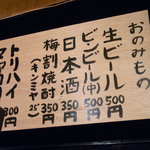 おのみもの
生ビール 500
ビンビール(中) 500
日本酒 350
梅割焼酎 350
(キンミヤ25°)
トリハイ 300